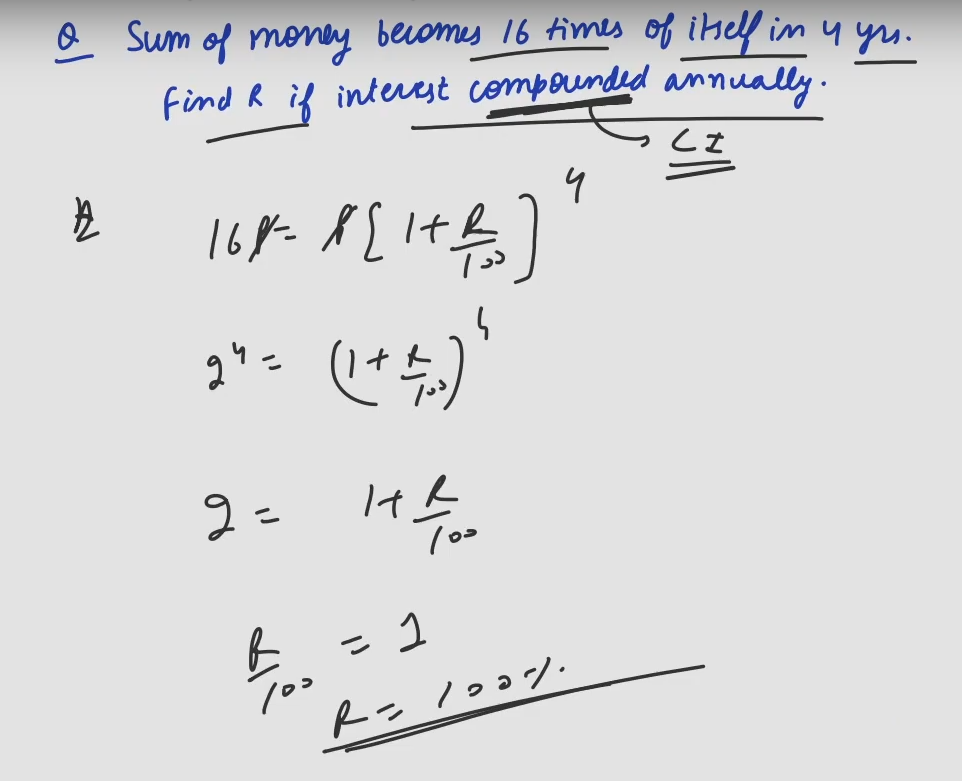 Q Sum of money becomes 16 times of itself in 4 yrs.
Find R if interest compounded annually.
CI
A 16P = P[1+R/100]^4
2^4 = (1+R/100)^4
2 = 1+R/100
R/100 = 1
R = 100%.